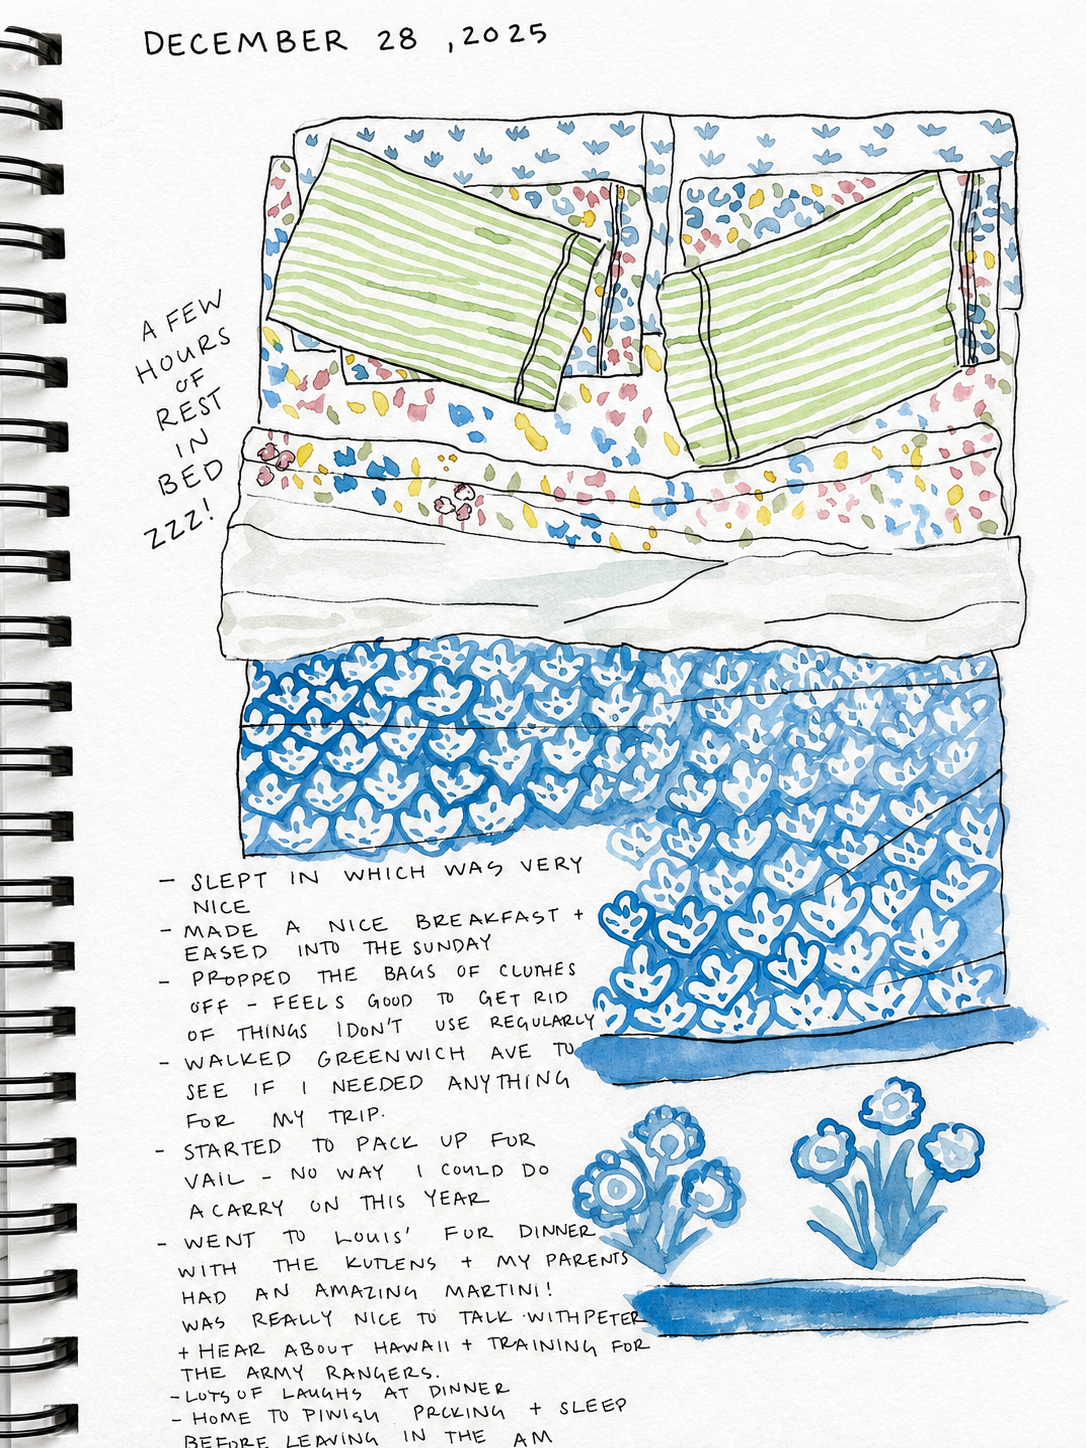 DECEMBER 28, 2025
A FEW
HOURS
OF
REST
IN
BED
ZZZ!
- SLEPT IN WHICH WAS VERY
NICE
- MADE A NICE BREAKFAST +
EASED INTO THE SUNDAY
- PROPPED THE BAGS OF CLOTHES
OFF - FEELS GOOD TO GET RID
OF THINGS I DON'T USE REGULARLY
- WALKED GREENWICH AVE TO
SEE IF I NEEDED ANYTHING
FOR MY TRIP.
- STARTED TO PACK UP FOR
VAIL - NO WAY I COULD DO
A CARRY ON THIS YEAR
- WENT TO LOUIS' FOR DINNER
WITH THE KUTLENS + MY PARENTS
HAD AN AMAZING MARTINI!
WAS REALLY NICE TO TALK WITH PETER
+ HEAR ABOUT HAWAII + TRAINING FOR
THE ARMY RANGERS.
- LOTS OF LAUGHS AT DINNER
- HOME TO PACKING + SLEEP
BEFORE LEAVING IN THE AM